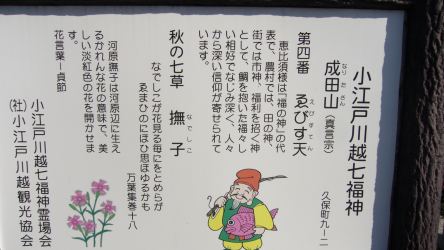 小江戸川越七福神
成田山（真言宗）
なりたさん
久保町九ー二
第四番　ゑびす天
えびすてん
恵比須様は『福の神』の代
表で、農村では、田の神、
街では市神、福利を招く神
として、鯛を抱いた福々し
い相好でなじみ深く、人々
から深い信仰が寄せられて
います。
秋の七草　撫子
なでしこ
なでしこが花見る毎にをとめらが
ゑまひのにほひ思ほゆるかも
万葉集巻十八
河原撫子は河原辺に生え
るかれんな花の意味で、美
しい淡紅色の花を開かせま
す。
花言葉ー貞節
小江戸川越七福神霊場会
（社）小江戸川越観光協会